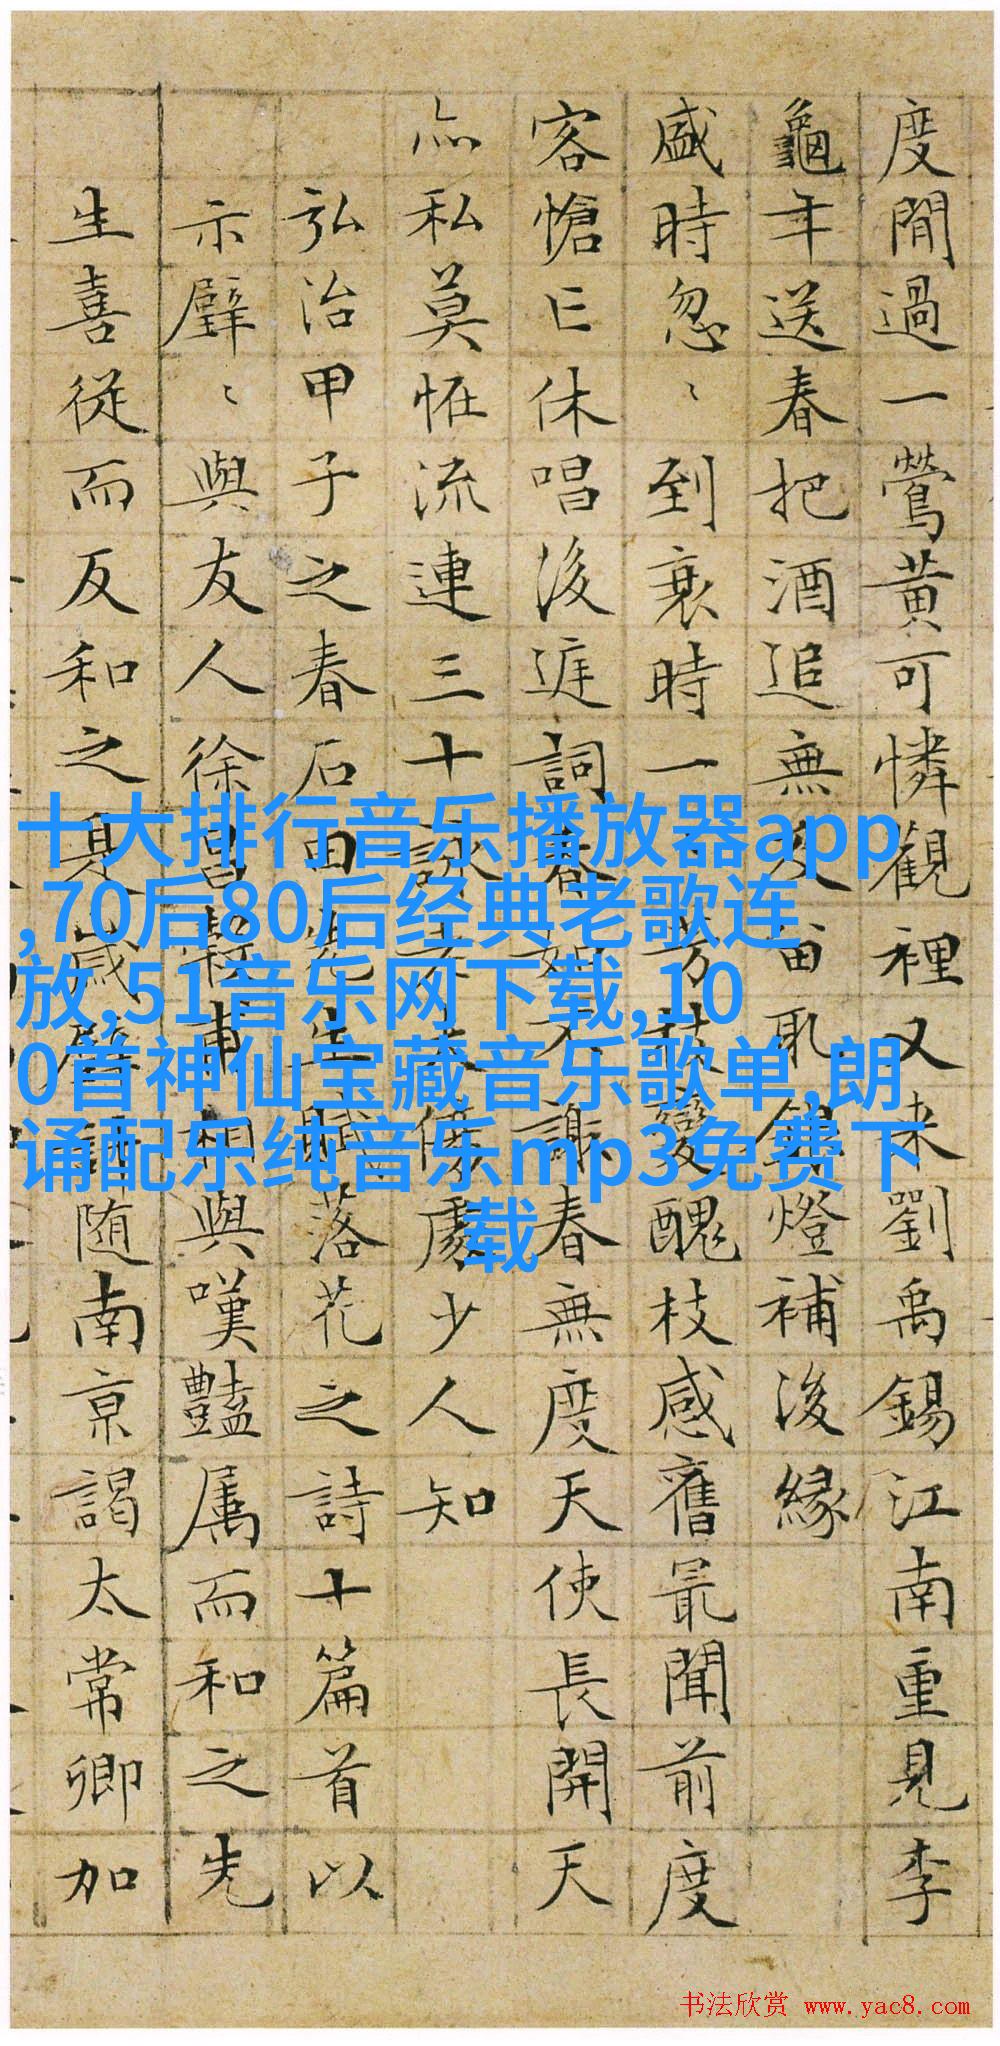 度閒過一鶯黃可憐觀裡又来劉禹錫江南重見李
龜年送春把酒追無及留取燈補後緣
盛時忽〻到衰時一芳變醜枝感舊最聞前度
客愴亡休唱後庭詞春如不謝春無度天使長開天
亦私莫怪流連三十詠處少人知
弘治甲子之春石田先生賦落花之詩十篇首以
示璧〻與友人徐昌穀甫相與嘆豔属而和之先
生喜從而反和之是歲璧随南京謁太常卿加
十大排行音乐播放器app
,70后80后经典老歌连
放,51音乐网下载,10
0首神仙宝藏音乐歌单,朗
诵配乐纯音乐mp3免费下
载
书法欣赏 www.yac8.com